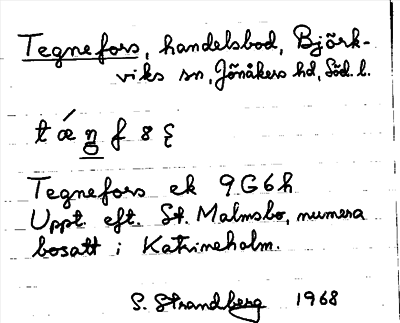 Tegnefors, handelsbod, Björk-
viks sn, Jönåkers hd, Söd. l.
Tegnefors ek 9G6h
Uppt. eft. St. Malmsbo, numera
bosatt i Katrineholm.
S. Strandberg 1968